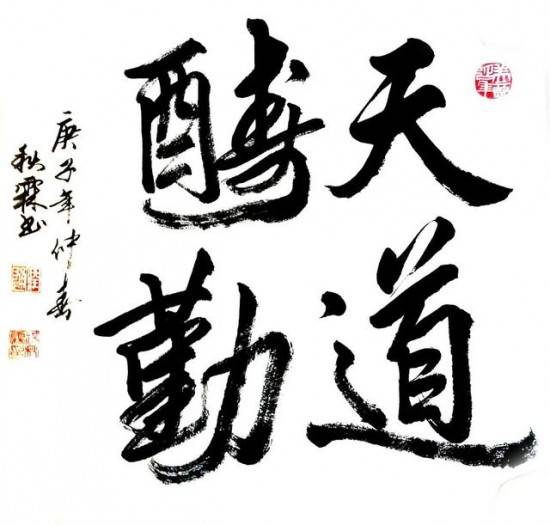 天道
酬勤
庚子年仲春
秋霖书